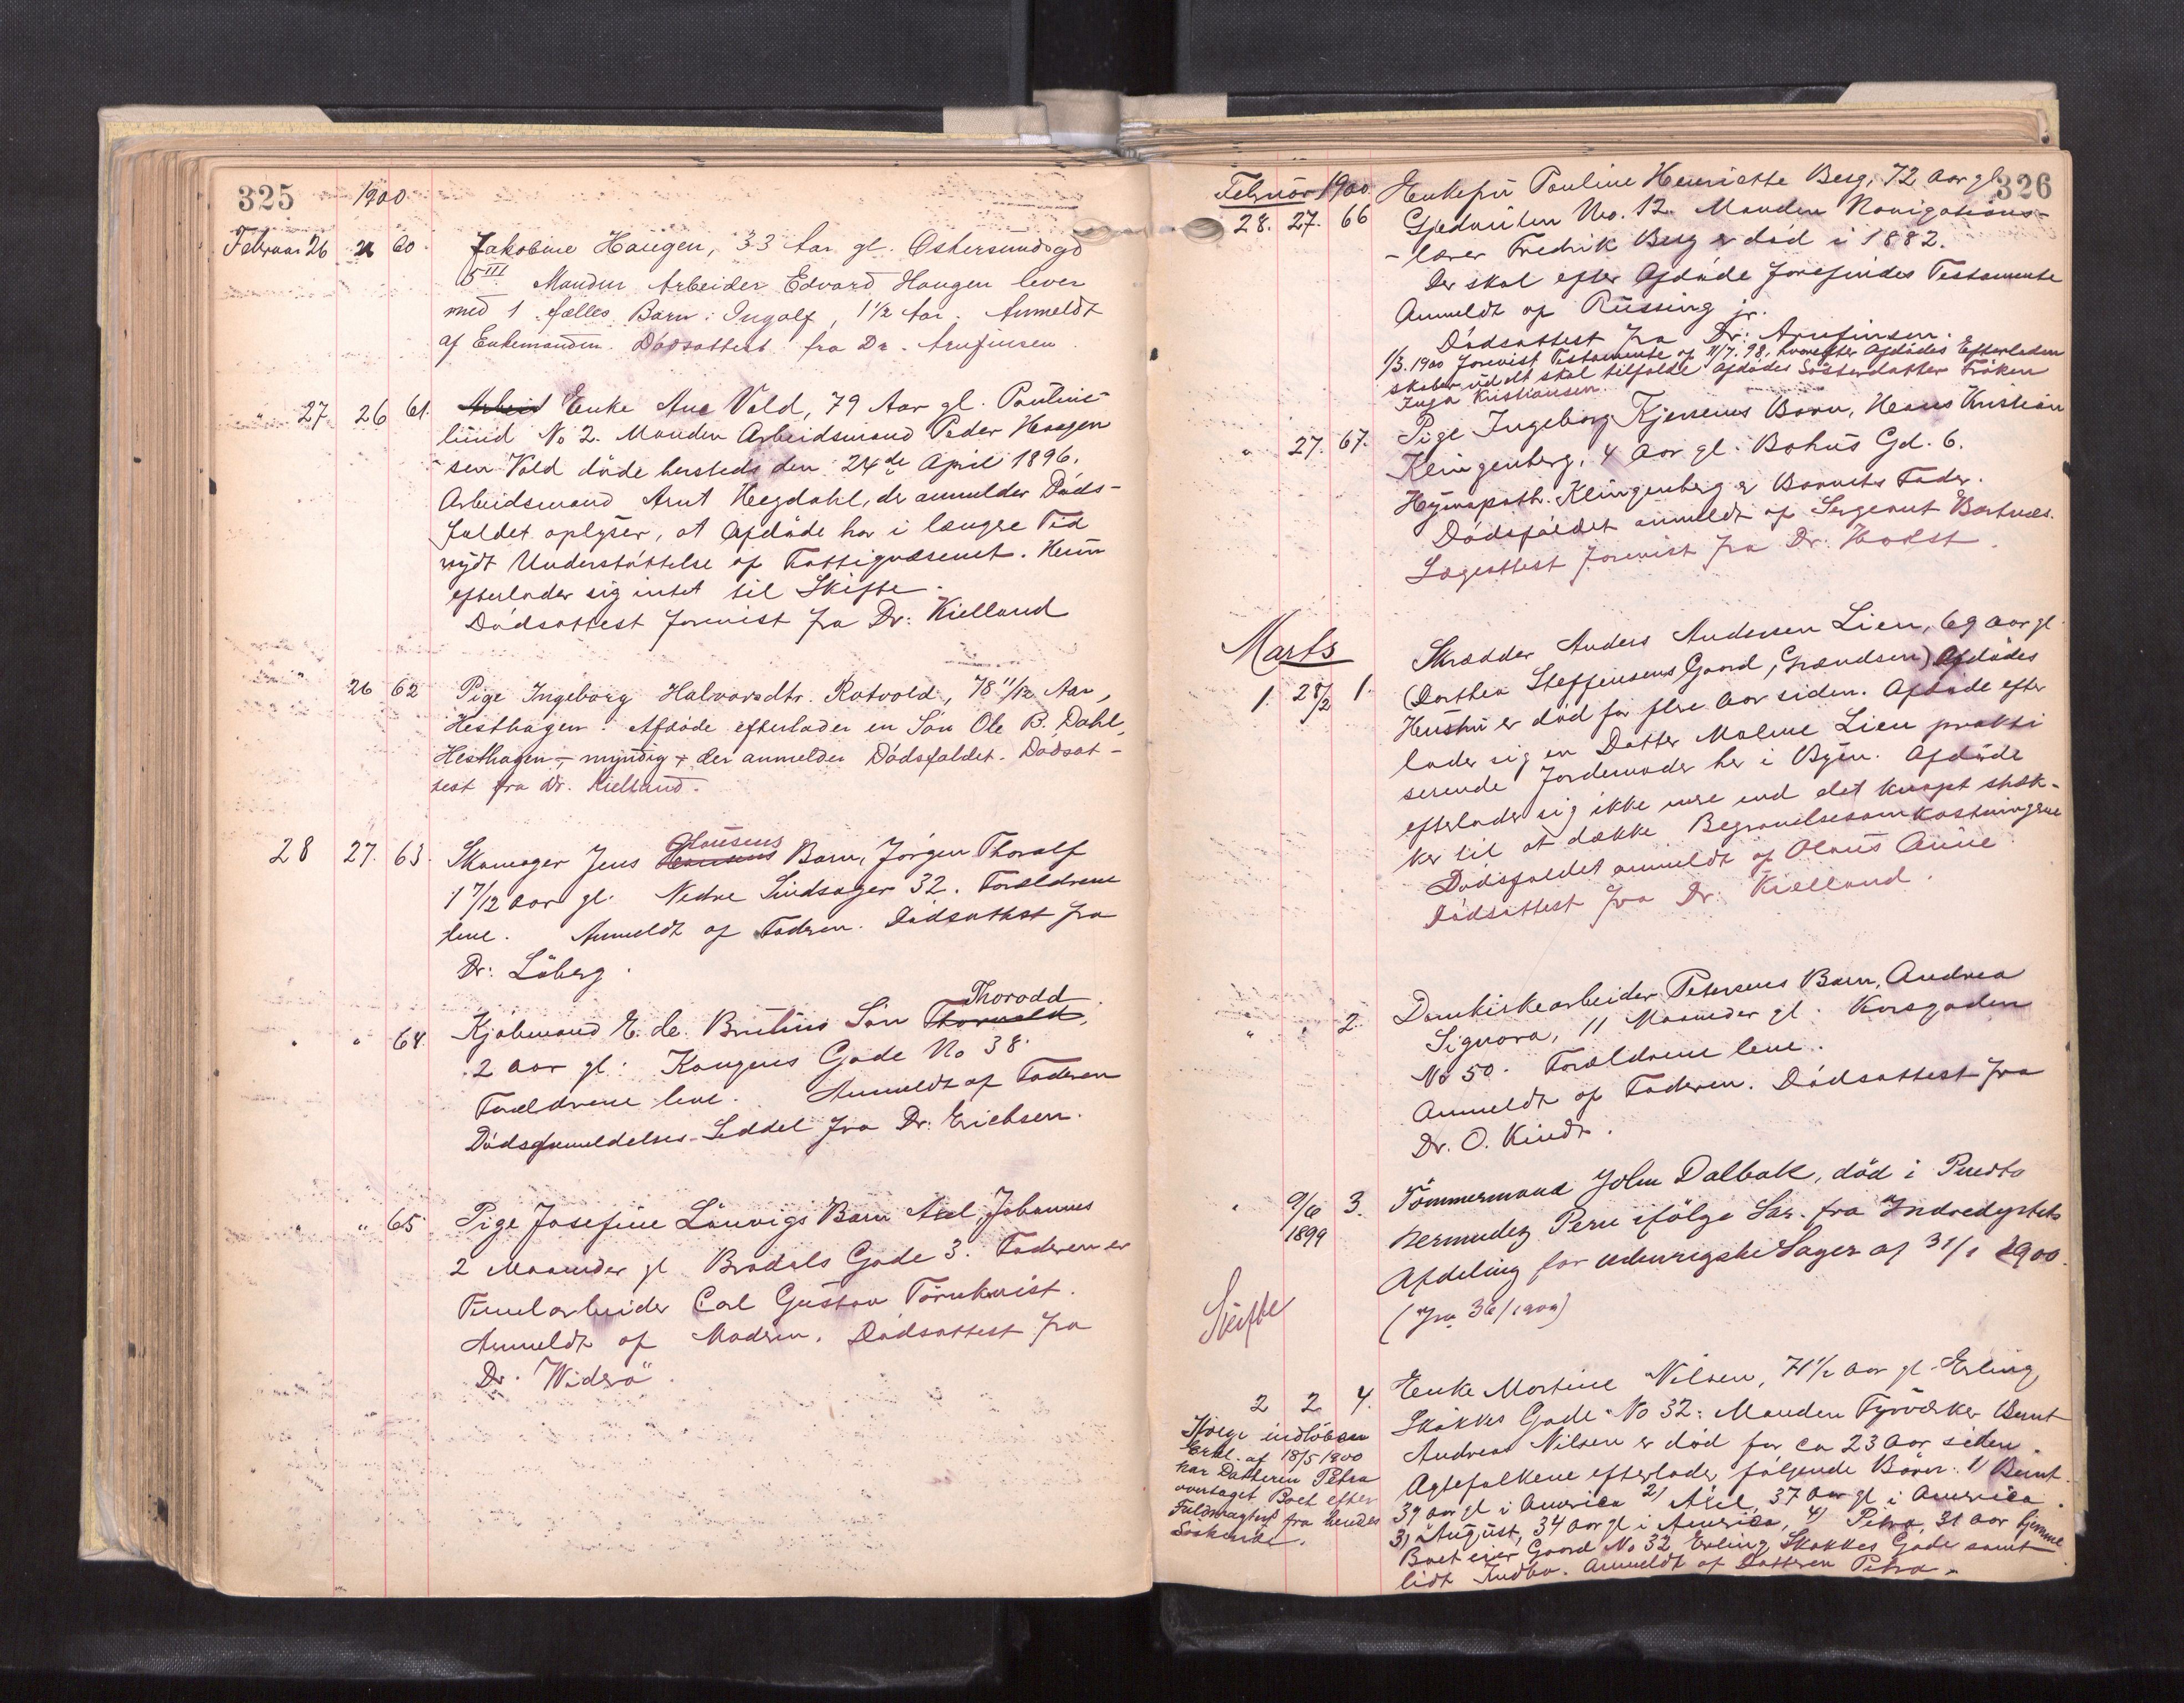 325 1900
Februar 26 26 60. Jakobine Haugen, 33 Aar gl. Østersundsgd
5 III Manden Arbeider Edvard Haugen lever
med 1 fælles Barn: Ingolf, 1 1/2 Aar. Anmeldt
af Enkemanden. Dødsattest fra Dr. Arnfinsen.
" 27. 26 61. Arbeid Enke Ane Vold, 79 Aar gl. Paulins-
lund No 2. Manden Arbeidsmand Peder Haagen
sen Vold døde hersteds den 24de April 1896.
Arbeidsmand Arnt Hegdahl, der anmelder Døds-
faldet oplyser, at Afdøde har i længre Tid
nydt Understøttelse af Fattigvæsenet. Hun
efterlader sig intet til Skifte.
Dødsattest forevist fra Dr: Kielland
" 26 62 Pige Ingeborg Halvorsdtr. Rotvold, 78 11/12 Aar,
Hesthagen. Afdøde efterlader en Søn Ole B. Dahl,
Hesthagen – myndig – der anmelder Dødsfaldet. Dødsat-
test fra Dr. Kielland.
28 27. 63. Skomager Jens Clausens Barn, Jørgen Thoralf
1 7/12 Aar gl. Nedre Sindsager 32. Forældrene
leve. Anmeldt af Faderen. Dødsattest fra
Dr: Löberg.
Thorodd
" " 64. Kjøbmand E. de. Brutins Søn Thorvald,
2 Aar gl. Kongens Gade No 38.
Forældrene leve. Anmeldt af Faderen
Dødsanmeldelses-Seddel fra Dr: Erichsen.
" " 65 Pige Josefine Lönvigs Barn Axel Johannes
2 Maaneder gl Brodals Gade 3. Faderen er
Arbeider Carl Gustav Törnkvist.
Anmeldt af Moderen. Dødsattest fra
Dr. Widerö.
326
Februar 1900. Enkefru Pauline Henriette Berg, 72 Aar gl
28. 27. 66 Gjedveiten No. 12. Manden Navigations-
-lærer Fredrik Berg er død i 1882.
Der skal efter Afdøde forefindes Testamente
Anmeldt af Rüssing jr.
Dødsattest fra Dr: Arnfinsen.
1/3. 1900 forevist Testamente af 11/7. 98, hvorefter Afdødes Efterladen
skaber udelt skal tilfalde Afdødes Søsterdatter Frøken
Inga Kristiansen.
" 27. 67. Pige Ingeborg Kjersems Barn, Hans Kristian
Klingenberg, 4 Aar gl. Bakus Gd. 6.
Klingenberg er Barnets Fader.
Dødsfaldet anmeldt af Sergeant Bartnes.
Lægeattest forevist fra Dr. Holst.
Marts
1. 28/2 1. Skrædder Anders Andersen Lien, 69 Aar gl.
(Dorthea Steffensens Gaard, Grændsen) Afdødes
Hustru er død for flere Aar siden. Afdøde efter
lader sig en Datter Malene Lien prakti
serende Jordemoder her i Byen. Afdøde
efterlader sig ikke mere end det knapt stræk-
ker til at dække Begravelsesomkostningerne
Dødsfaldet anmeldt af Olaus Aune.
Dødsattest fra Dr. Kielland.
" " 2. Domkirkearbeider Petersens Barn, Andrea
Signora, 11 Maaneder gl. Korsgaden
No 50. Forældrene leve.
Anmeldt af Faderen. Dødsattest fra
Dr. O. Kindt.
" 9/6 1899 3. Tømmermand John Dalbak, død i Puerto
Bermudez Peru ifølge Skr. fra Indredeptets
Afdeling for udenrigske Sager af 31/1 1900.
(Jrn 36/1900)
Skifte
2 2 4. Enke Martine Nilsen, 71 1/2 Aar gl. Erling
Skakkes Gade No 32. Manden Fyrvørker Bernt
Andreas Nilsen er død for ca 23 Aar siden.
Ægtefolkene efterlader følgende Børn: 1/ Bernt
39 Aar gl i America 2/ Axel, 37 Aar gl i America.
3/ August, 34 Aar gl i America, 4/ Petra, 31 Aar hjemme
Boet eier Gaard No 32 Erling Skakkes Gade samt
lidt Indbo. Anmeldt af Datteren Petra.
Ifølge indløben
Erkl. af 18/5 1900
har Datteren Petra
overtaget Boet efter
Fuldmagter fra hendes
Søskende.